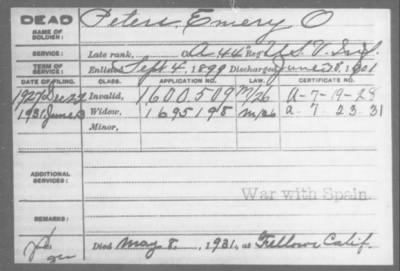 DEAD Peters, Emery O
NAME OF SOLDIER:
SERVICE: Late rank, Co A 44 Reg't U.S. V. Inf.
TERM OF SERVICE: Enlisted Sept 4, 1899 Discharged June 30, 1901
DATE OF FILING. CLASS. APPLICATION NO. LAW. CERTIFICATE NO.
1927 Dec 22 Invalid, 1600509 m/26 A-7-19-28
1931 June 3 Widow, 1695195 m/26 a-7 23-31
Minor,
ADDITIONAL SERVICES:
War with Spain
REMARKS:
Died May 8, 1931, at Fellows Calif.